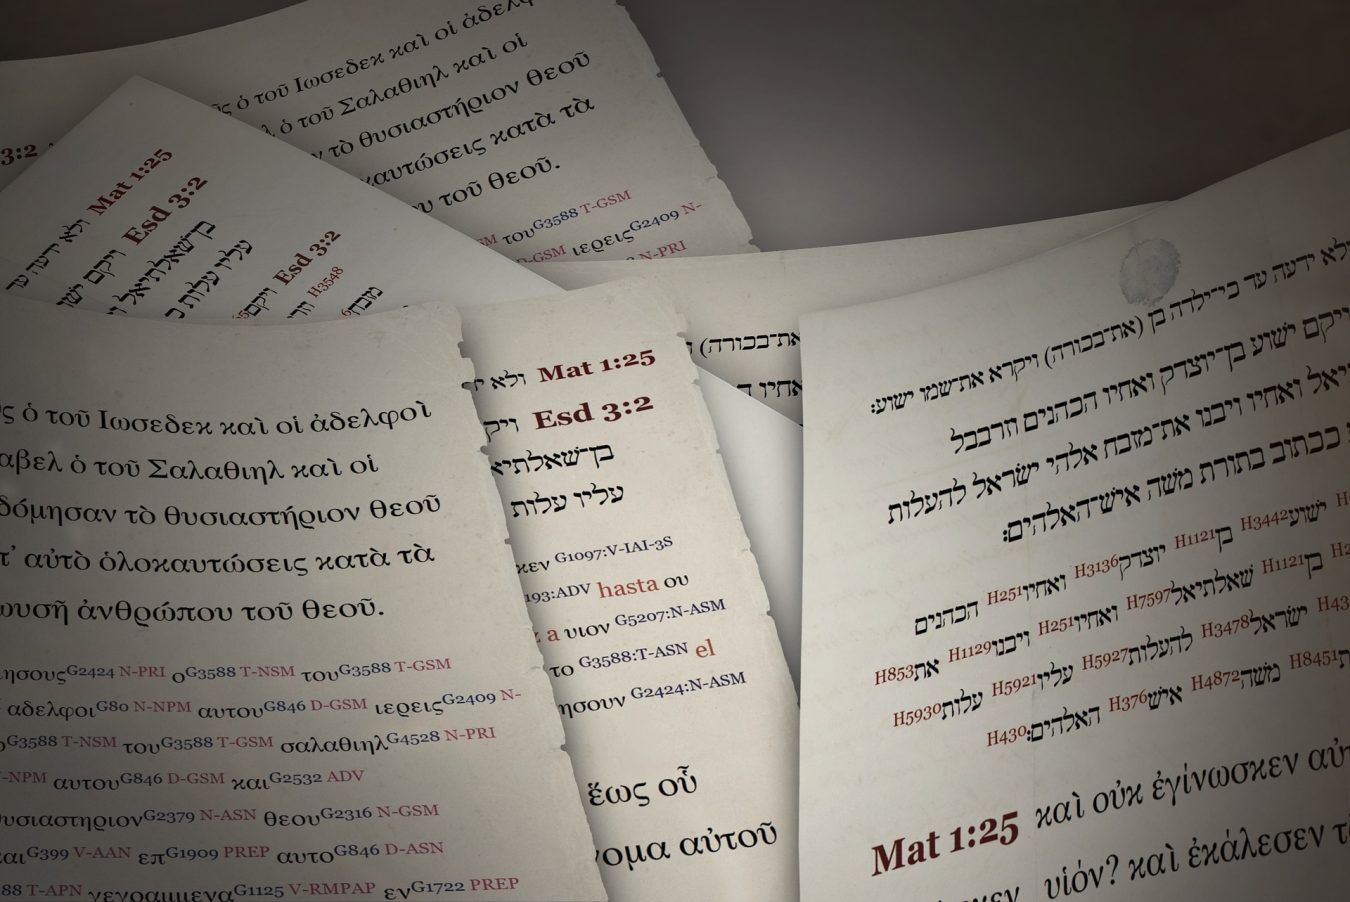 ὁ τοῦ Ιωσεδεκ καὶ οἱ
ὁ τοῦ Σαλαθιηλ καὶ οἱ
τὸ θυσιαστήριον θεοῦ
κατὰ τὰ
τοῦ θεοῦ.
τουG3588 T-GSM
D-GSM ιερειςG2409 N-
N-PRI
3:2
ולא ידעה עד Mat 1:25
ויקם Esd 3:2
בן־שאלתיאל
עליו עלות
ויקם Esd 3:2
H3548
מזבח
ὁ τοῦ Ιωσεδεκ καὶ οἱ ἀδελφοὶ
ὁ τοῦ Σαλαθιηλ καὶ οἱ
τὸ θυσιαστήριον θεοῦ
αὐτὸ ὁλοκαυτώσεις κατὰ τὰ
ἀνθρώπου τοῦ θεοῦ.
G2424 N-PRI οG3588 T-NSM τουG3588 T-GSM
αδελφοιG80 N-NPM αυτουG846 D-GSM ιερειςG2409 N-
G3588 T-NSM τουG3588 T-GSM σαλαθιηλG4528 N-PRI
-NPM αυτουG846 D-GSM καιG2532 ADV
G2379 N-ASN θεουG2316 N-GSM
G399 V-AAN επG1909 PREP αυτοG846 D-ASN
88 T-APN γεγραμμεναG1125 V-RMPAP ενG1722 PREP
ולא Mat 1:25
Esd 3:2
בן־שאלתיא
עליו עלות
κεν G1097:V-IAI-3S
193:ADV hasta ου
a υιον G5207:N-ASM
το G3588:T-ASN el
G2424:N-ASM
ἕως οὗ
αὐτοῦ
את־בכורה)
ואחיו
ולא ידעה עד כי־ילדה בן (את־בכורה) ויקרא את־שמו ישוע׃
ויקם ישוע בן־יוצדק ואחיו הכהנים וזרבבל
ואחיו ויבנו את־מזבח אלהי ישראל להעלות
ככתוב בתורת משה איש־האלהים׃
ישועH3442 בןH1121 יוצדקH3136 ואחיוH251 הכהנים
בןH1121 שאלתיאלH7597 ואחיוH251 ויבנוH1129 אתH853
ישראלH3478 להעלותH5927 עליוH5921 עלותH5930
H8451 משהH4872 אישH376 האלהים׃H430
Mat 1:25 καὶ οὐκ ἐγίνωσκεν
υἱόν? καὶ ἐκάλεσεν